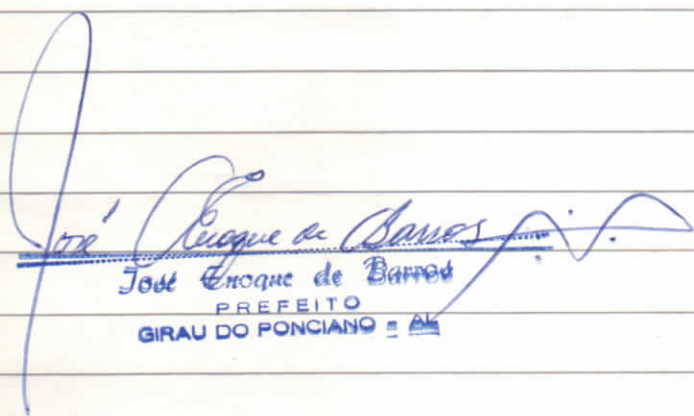 José Enoque de Barros
José Enoque de Barros
PREFEITO
GIRAU DO PONCIANO = AL